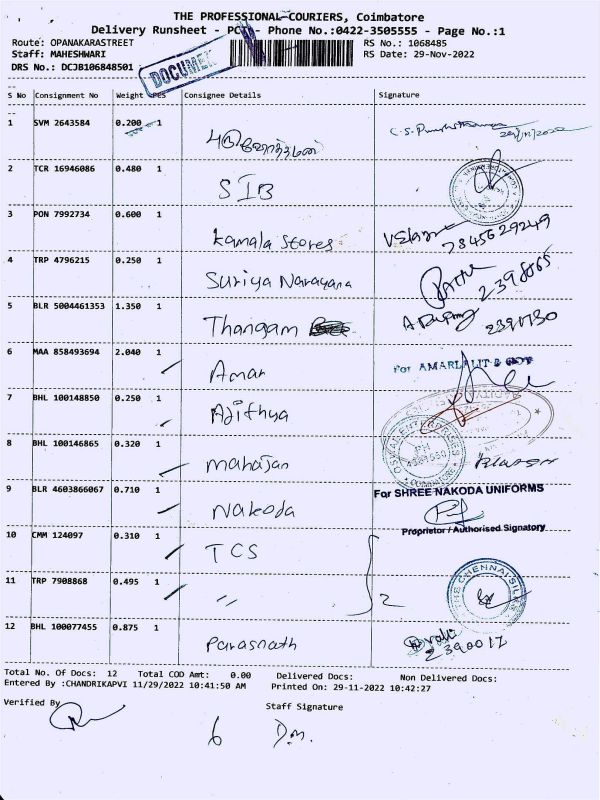 THE PROFESSIONAL COURIERS, Coimbatore
Delivery Runsheet - PCTD- Phone No.:0422-3505555 - Page No.:1
Route: OPANAKARASTREET RS No.: 1068485
Staff: MAHESHWARI RS Date: 29-Nov-2022
DRS No.: DCJB106848501
DOCUMENT
S No Consignment No Weight PCS Consignee Details Signature
1 SVM 2643584 0.200 1 புருஷோத்தமன் 29/11/2022
2 TCR 16946086 0.480 1 SIB
3 PON 7992734 0.600 1 Kamala Stores 7845629249
4 TRP 4796215 0.250 1 Suriya Narayana 2398065
5 BLR 5004461353 1.350 1 Thangam
6 MAA 858493694 2.040 1 Aman For AMARLALIT &
7 BHL 100148850 0.250 1 Adithya
8 BHL 100146865 0.320 1 mahajan
9 BLR 4603866067 0.710 1 Nakoda For SHREE NAKODA UNIFORMS
Proprietor / Authorised Signatory
10 CMM 124097 0.310 1 TCS
11 TRP 7908868 0.495 1 〃 2 THE CHENNAI SILKS
12 BHL 100077455 0.875 1 Parasnath 2390012
Total No. Of Docs: 12 Total COD Amt: 0.00 Delivered Docs: Non Delivered Docs:
Entered By :CHANDRIKAPVI 11/29/2022 10:41:50 AM Printed On: 29-11-2022 10:42:27
Verified By Staff Signature
6 D.M.